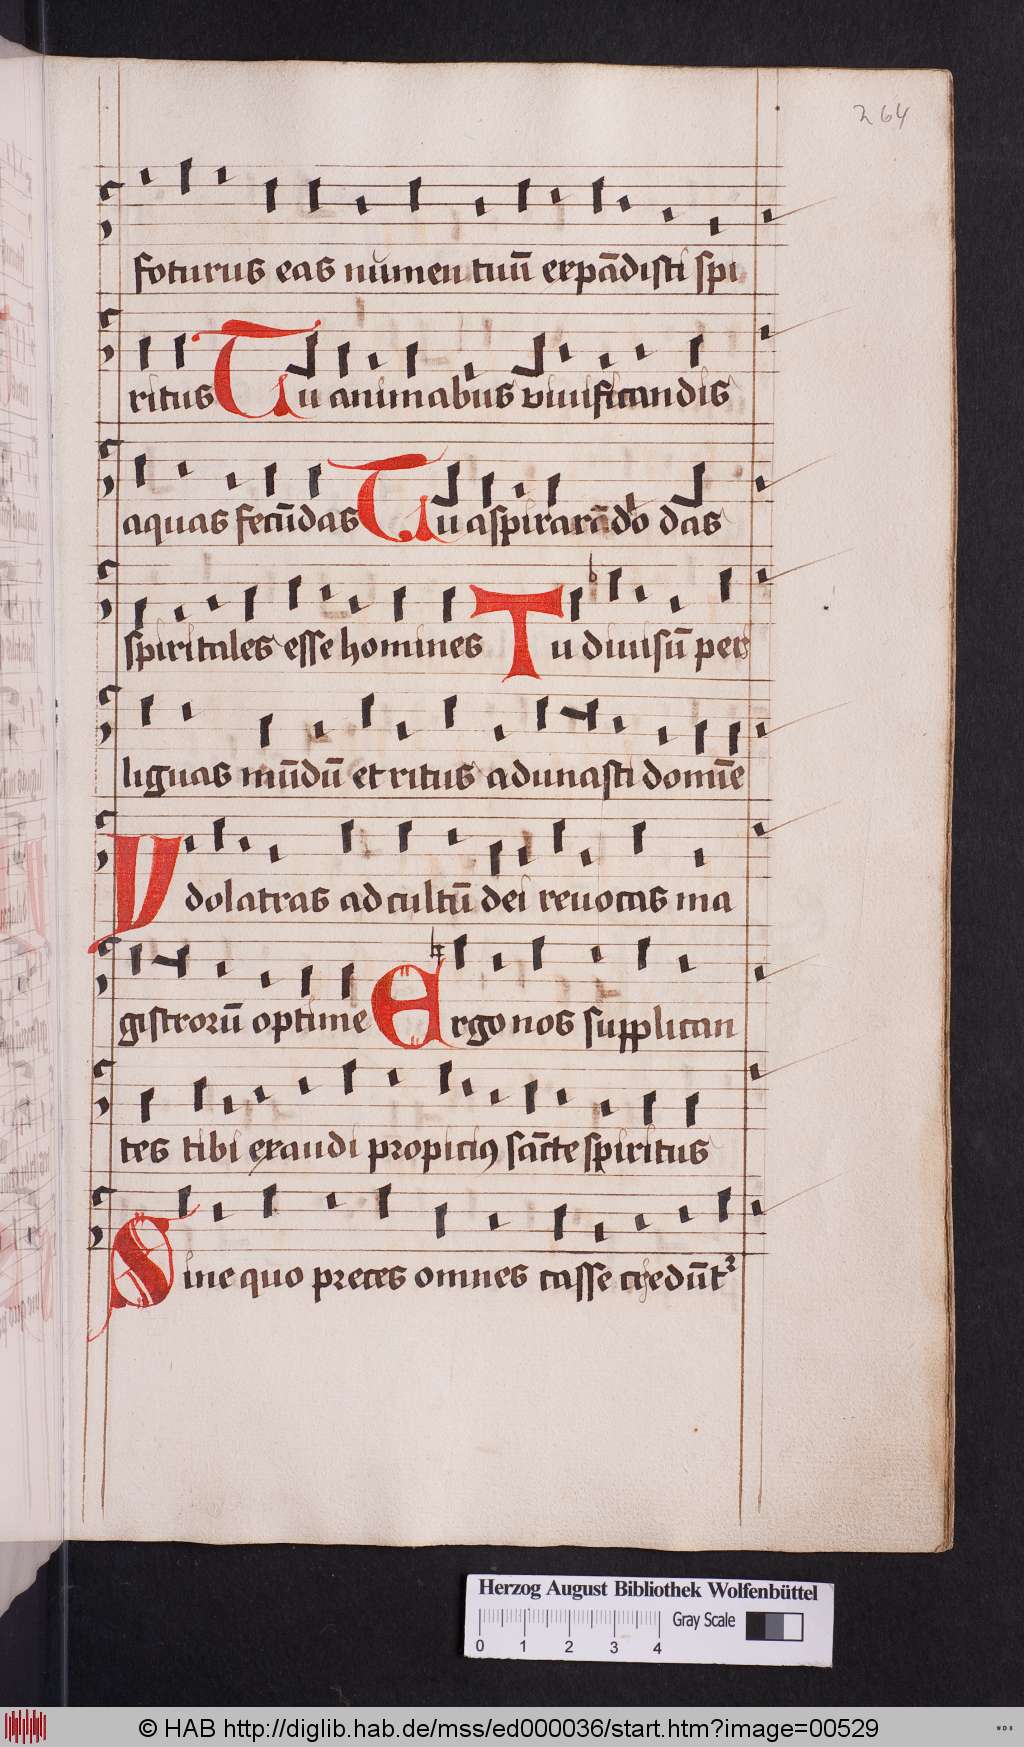 264
foturus eas numen tuū expādisti spi
ritus Tu animabus viuificandis
aquas fecūdas Tu aspirarādo das
spiritales esse homines Tu diuisū per
liguas mūdū et ritus adunasti domīe
Ydolatras ad cultū dei reuocas ma
gistrorū optime Ergo nos supplican
tes tibi exaudi propicius sācte spiritus
Sine quo preces omnes casse credūtʳ
Herzog August Bibliothek Wolfenbüttel
Gray Scale
0 1 2 3 4
© HAB http://diglib.hab.de/mss/ed000036/start.htm?image=00529